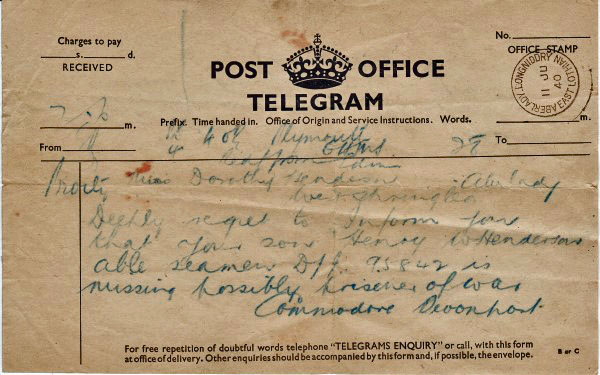 Charges to pay
s. d.
RECEIVED
POST OFFICE
TELEGRAM
No.
OFFICE STAMP
ABERLADY, LONGNIDDRY
11 JU
40
EAST LOTHIAN
Prefix. Time handed in. Office of Origin and Service Instructions. Words.
m.
From
To
m.
Plymouth 29
Priority Dorothy Henderson Aberlady
Deeply regret to inform you
that your son Henry W Henderson
able seamen D/J 95842 is
missing possibly prisoner of war
Commodore Devonport
For free repetition of doubtful words telephone "TELEGRAMS ENQUIRY" or call, with this form
at office of delivery. Other enquiries should be accompanied by this form and, if possible, the envelope.
B or C